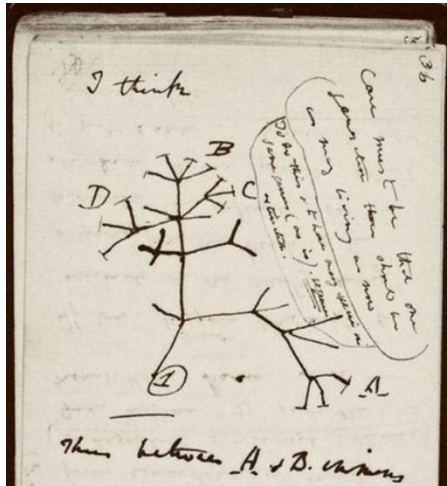 36
I think
Case must be that one
generation then should be
as many living as now
To do this & to have many species in
same genus (as is). requires
extinction.
B
D
C
1
A
Thus between A & B. immens